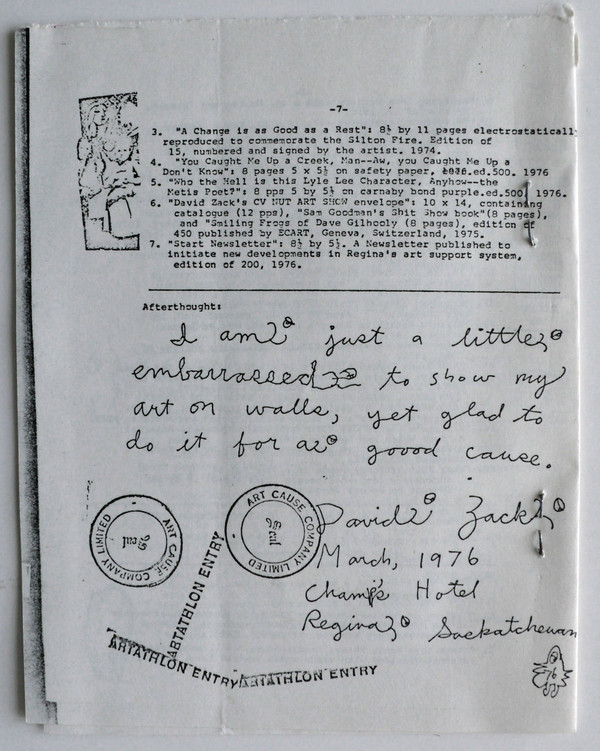 -7-
3. "A Change is as Good as a Rest": 8½ by 11 pages electrostatically
reproduced to commemorate the Silton Fire. Edition of
15, numbered and signed by the artist. 1974.
4. "You Caught Me Up a Creek, Man--Aw, you Caught Me Up a
Don't Know": 8 pages 5 x 5½ on safety paper, ed.500. 1976
5. "Who the Hell is this Lyle Lee Character, Anyhow--the
Metis Poet?": 8 pps 5 by 5½ on carnaby bond purple.ed.500, 1976.
6. "David Zack's CV NUT ART SHOW envelope": 10 x 14, containing
catalogue (12 pps), "Sam Goodman's Shit Show book"(8 pages),
and "Smiling Frogs of Dave Gilhooly (8 pages), edition of
450 published by ECART, Geneva, Switzerland, 1975.
7. "Start Newsletter": 8½ by 5½. A Newsletter published to
initiate new developments in Regina's art support system,
edition of 200, 1976.
Afterthought:
I am just a little
embarrassed to show my
art on walls, yet glad to
do it for a goood cause.
David Zack
March, 1976
Champs Hotel
Regina Saskatchewan
76
ART CAUSE COMPANY LIMITED
Seal
ART CAUSE COMPANY LIMITED
ARTATHLON ENTRY
ARTATHLON ENTRY
ARTATHLON ENTRY